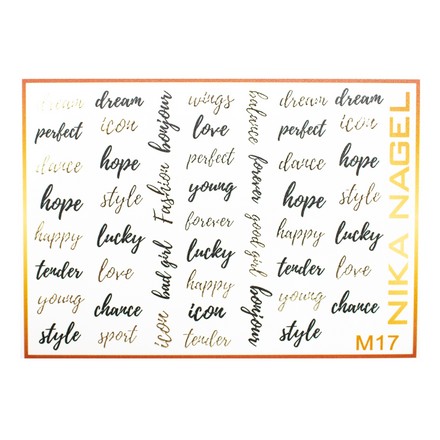 dream
perfect
dance
hope
happy
tender
young
style
dream
icon
hope
style
lucky
love
chance
sport
Fashion bonjour
icon bad girl
wings
love
perfect
young
forever
lucky
happy
icon
tender
balance
forever
good girl
bonjour
dream
perfect
dance
hope
happy
tender
young
style
dream
icon
hope
style
lucky
love
chance
NIKA NAGEL
M17